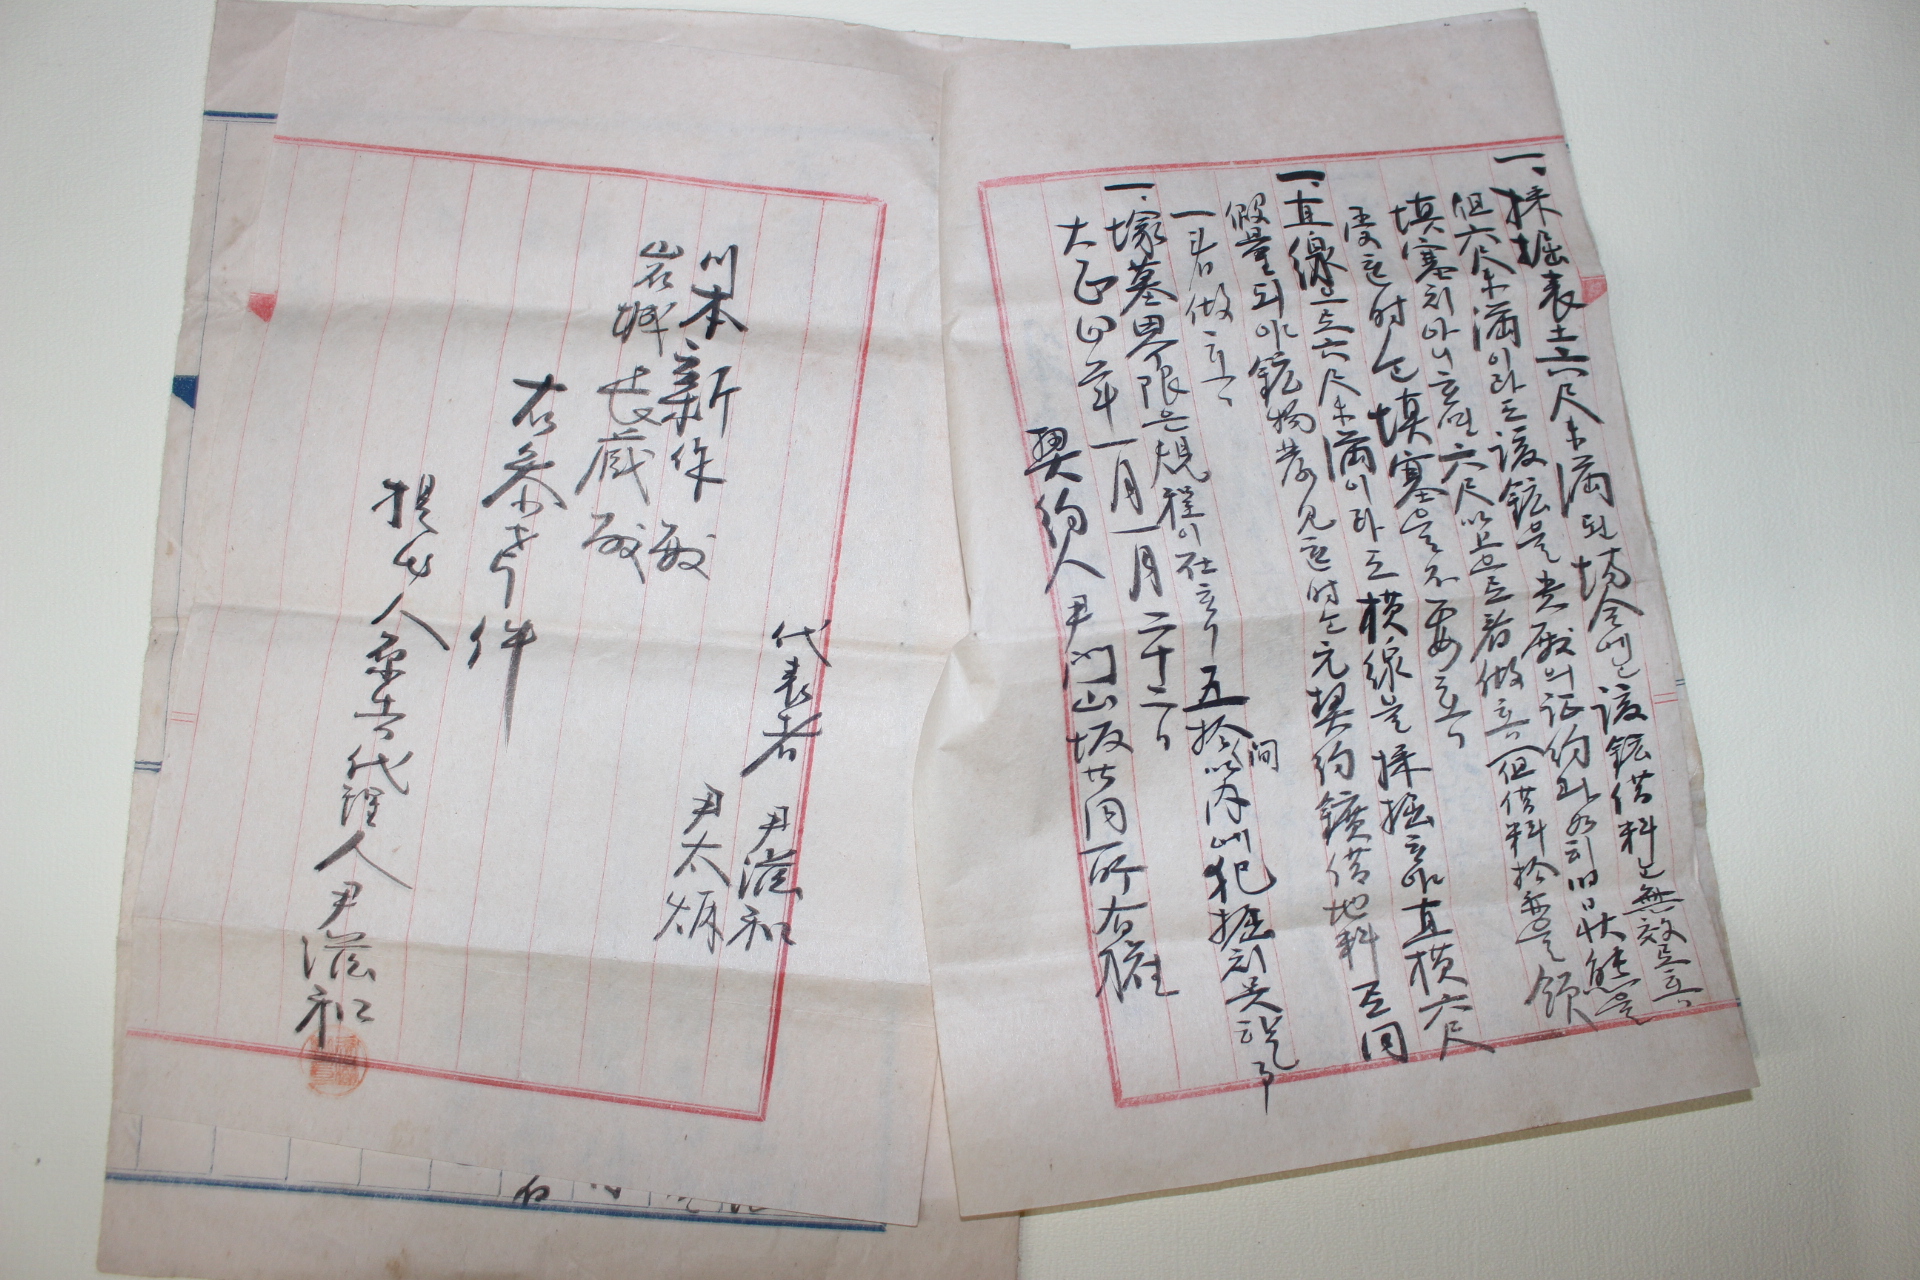 一、採掘表土六尺未滿된 場合에는 該鑛借料는 無效로홈
但六尺未滿이라도 該鑛을 貴殿의 証約과 如히 旧日狀態을
塡塞치아니하면 六尺以上으로看做홈 但借料拾 을 領
受한時는 塡塞을 不要홈
一、直線으로六尺未滿이라도 橫線을 採掘하야 直橫六尺
假量되야 鑛物 發見한時는 元契約 鑛借地料로同
一看做홈
一、塚墓界限은 規程이 在하 五拾間以內에 犯掘치못할事
大正四年一月 二十二日
契約人 尹門山坂 同所有權
代表者 尹滋和
尹太炳
川本新作 殿
岩城長藏 殿
右參考件
提出人 原告代理人 尹滋和